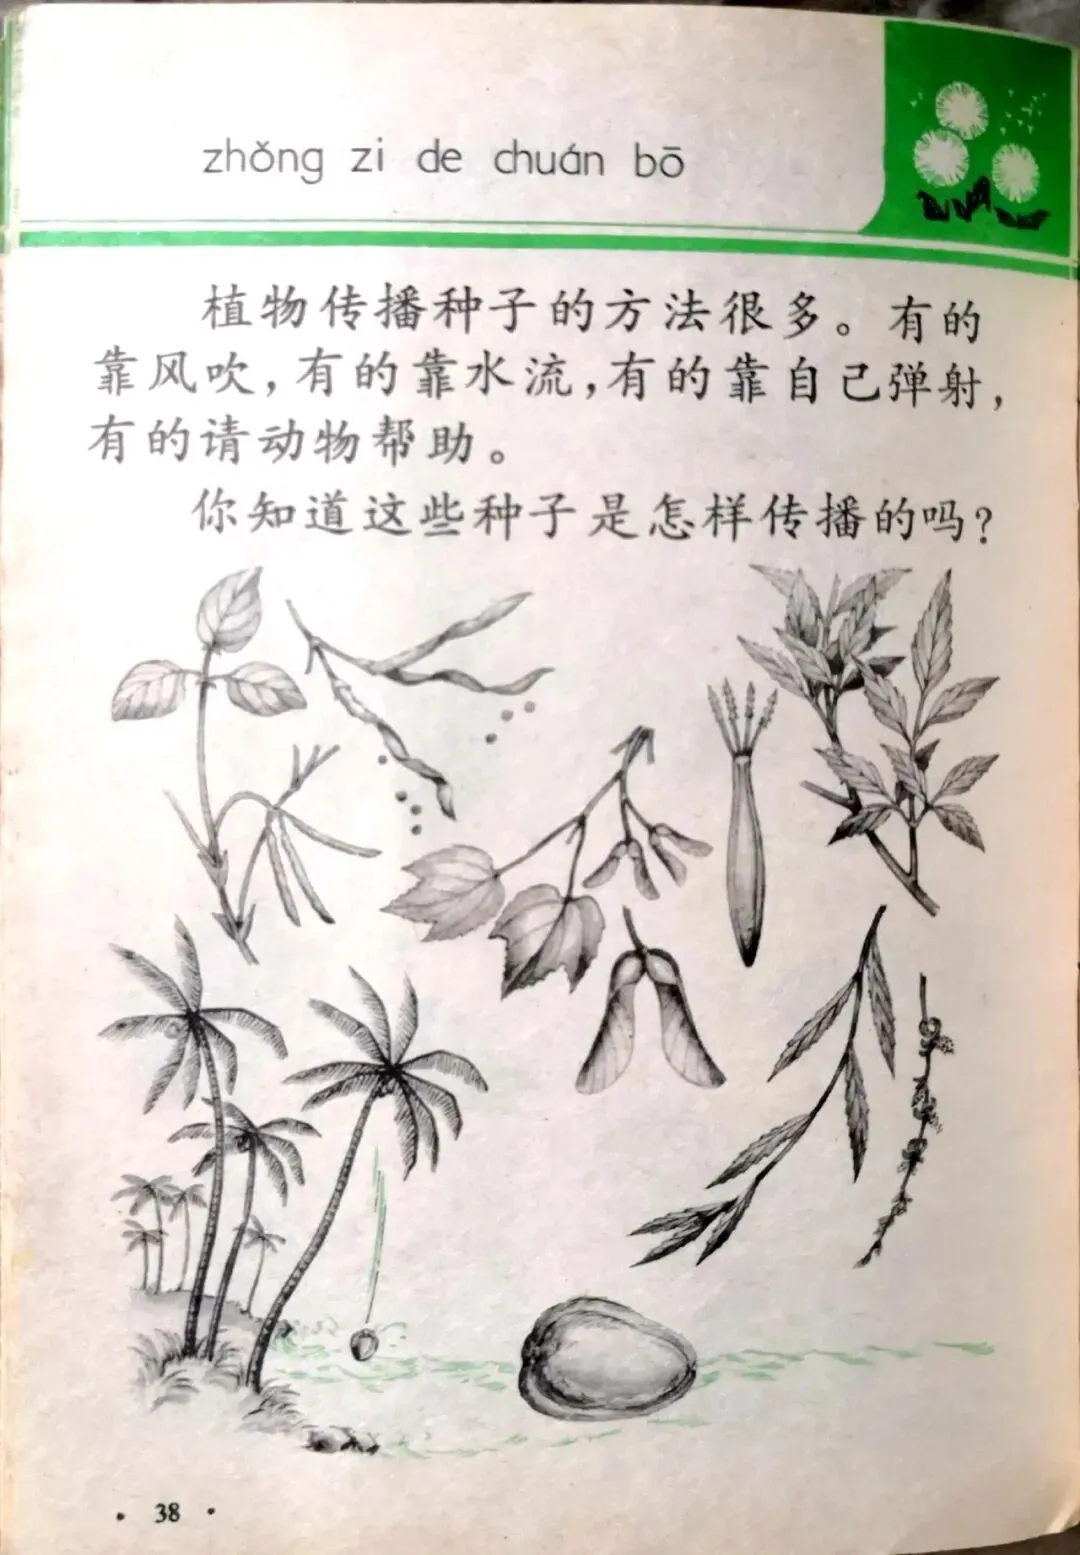 zhǒng zi de chuán bō
植物传播种子的方法很多。有的
靠风吹，有的靠水流，有的靠自己弹射，
有的请动物帮助。
你知道这些种子是怎样传播的吗？
· 38 ·